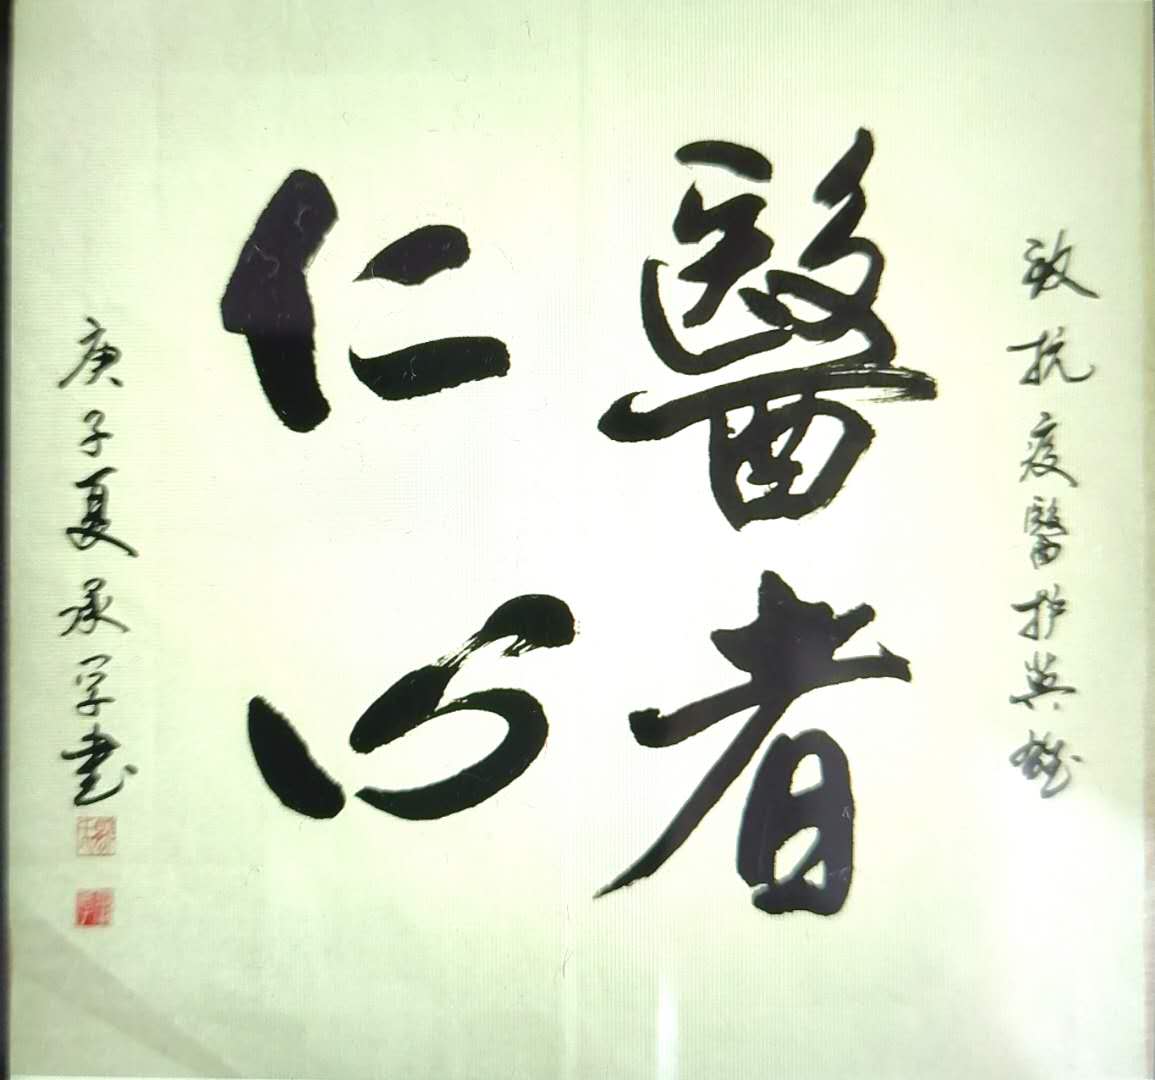 致抗疫醫护英雄
醫者
仁心
庚子夏承学書